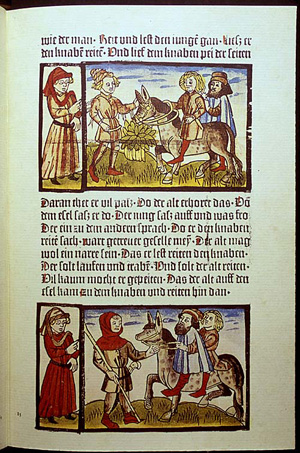 wie der man. Reit und lest den jungē gan. Liesz er
den knabē reitē. Und lieff dem knaben pei der seiten
Daran thet er vil palz. Do der alt erhoret das. Vō
dem esel sasz er do. Der iung sasz auff und was fro
Der ein zu dem andern sprach. Do er den knaben
reitē sach. wart getrewer geselle mey. Der alt mag
wol ein narre sein. Das er lest reiten den knaben.
Der solt lauffen und trabē. Und solt der alt reiten.
Vil kaum mocht er gepeiten. Das der alt auff den
esel kam. zu dem knaben und reiten hin dan.